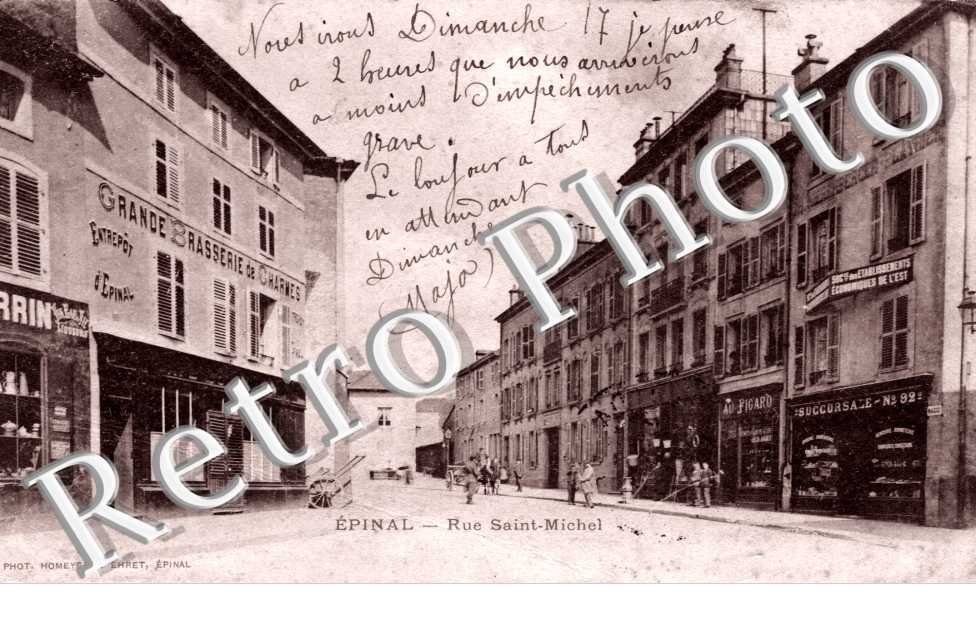 Nous irons Dimanche 17 je pense
a 2 heures que nous arriverons
a moins d'empêchements
grave.
Le bonjour a tous
en attendant
Dimanche
GRANDE BRASSERIE de CHARMES
ENTREPÔT
d'ÉPINAL
RRIN
SOCté des ÉTABLISSEMENTS
ÉCONOMIQUES DE L'EST
AU FIGARO
SUCCURSALE - No 92
Retro Photo
ÉPINAL — Rue Saint-Michel
PHOT. HOMEYE EHRET, ÉPINAL